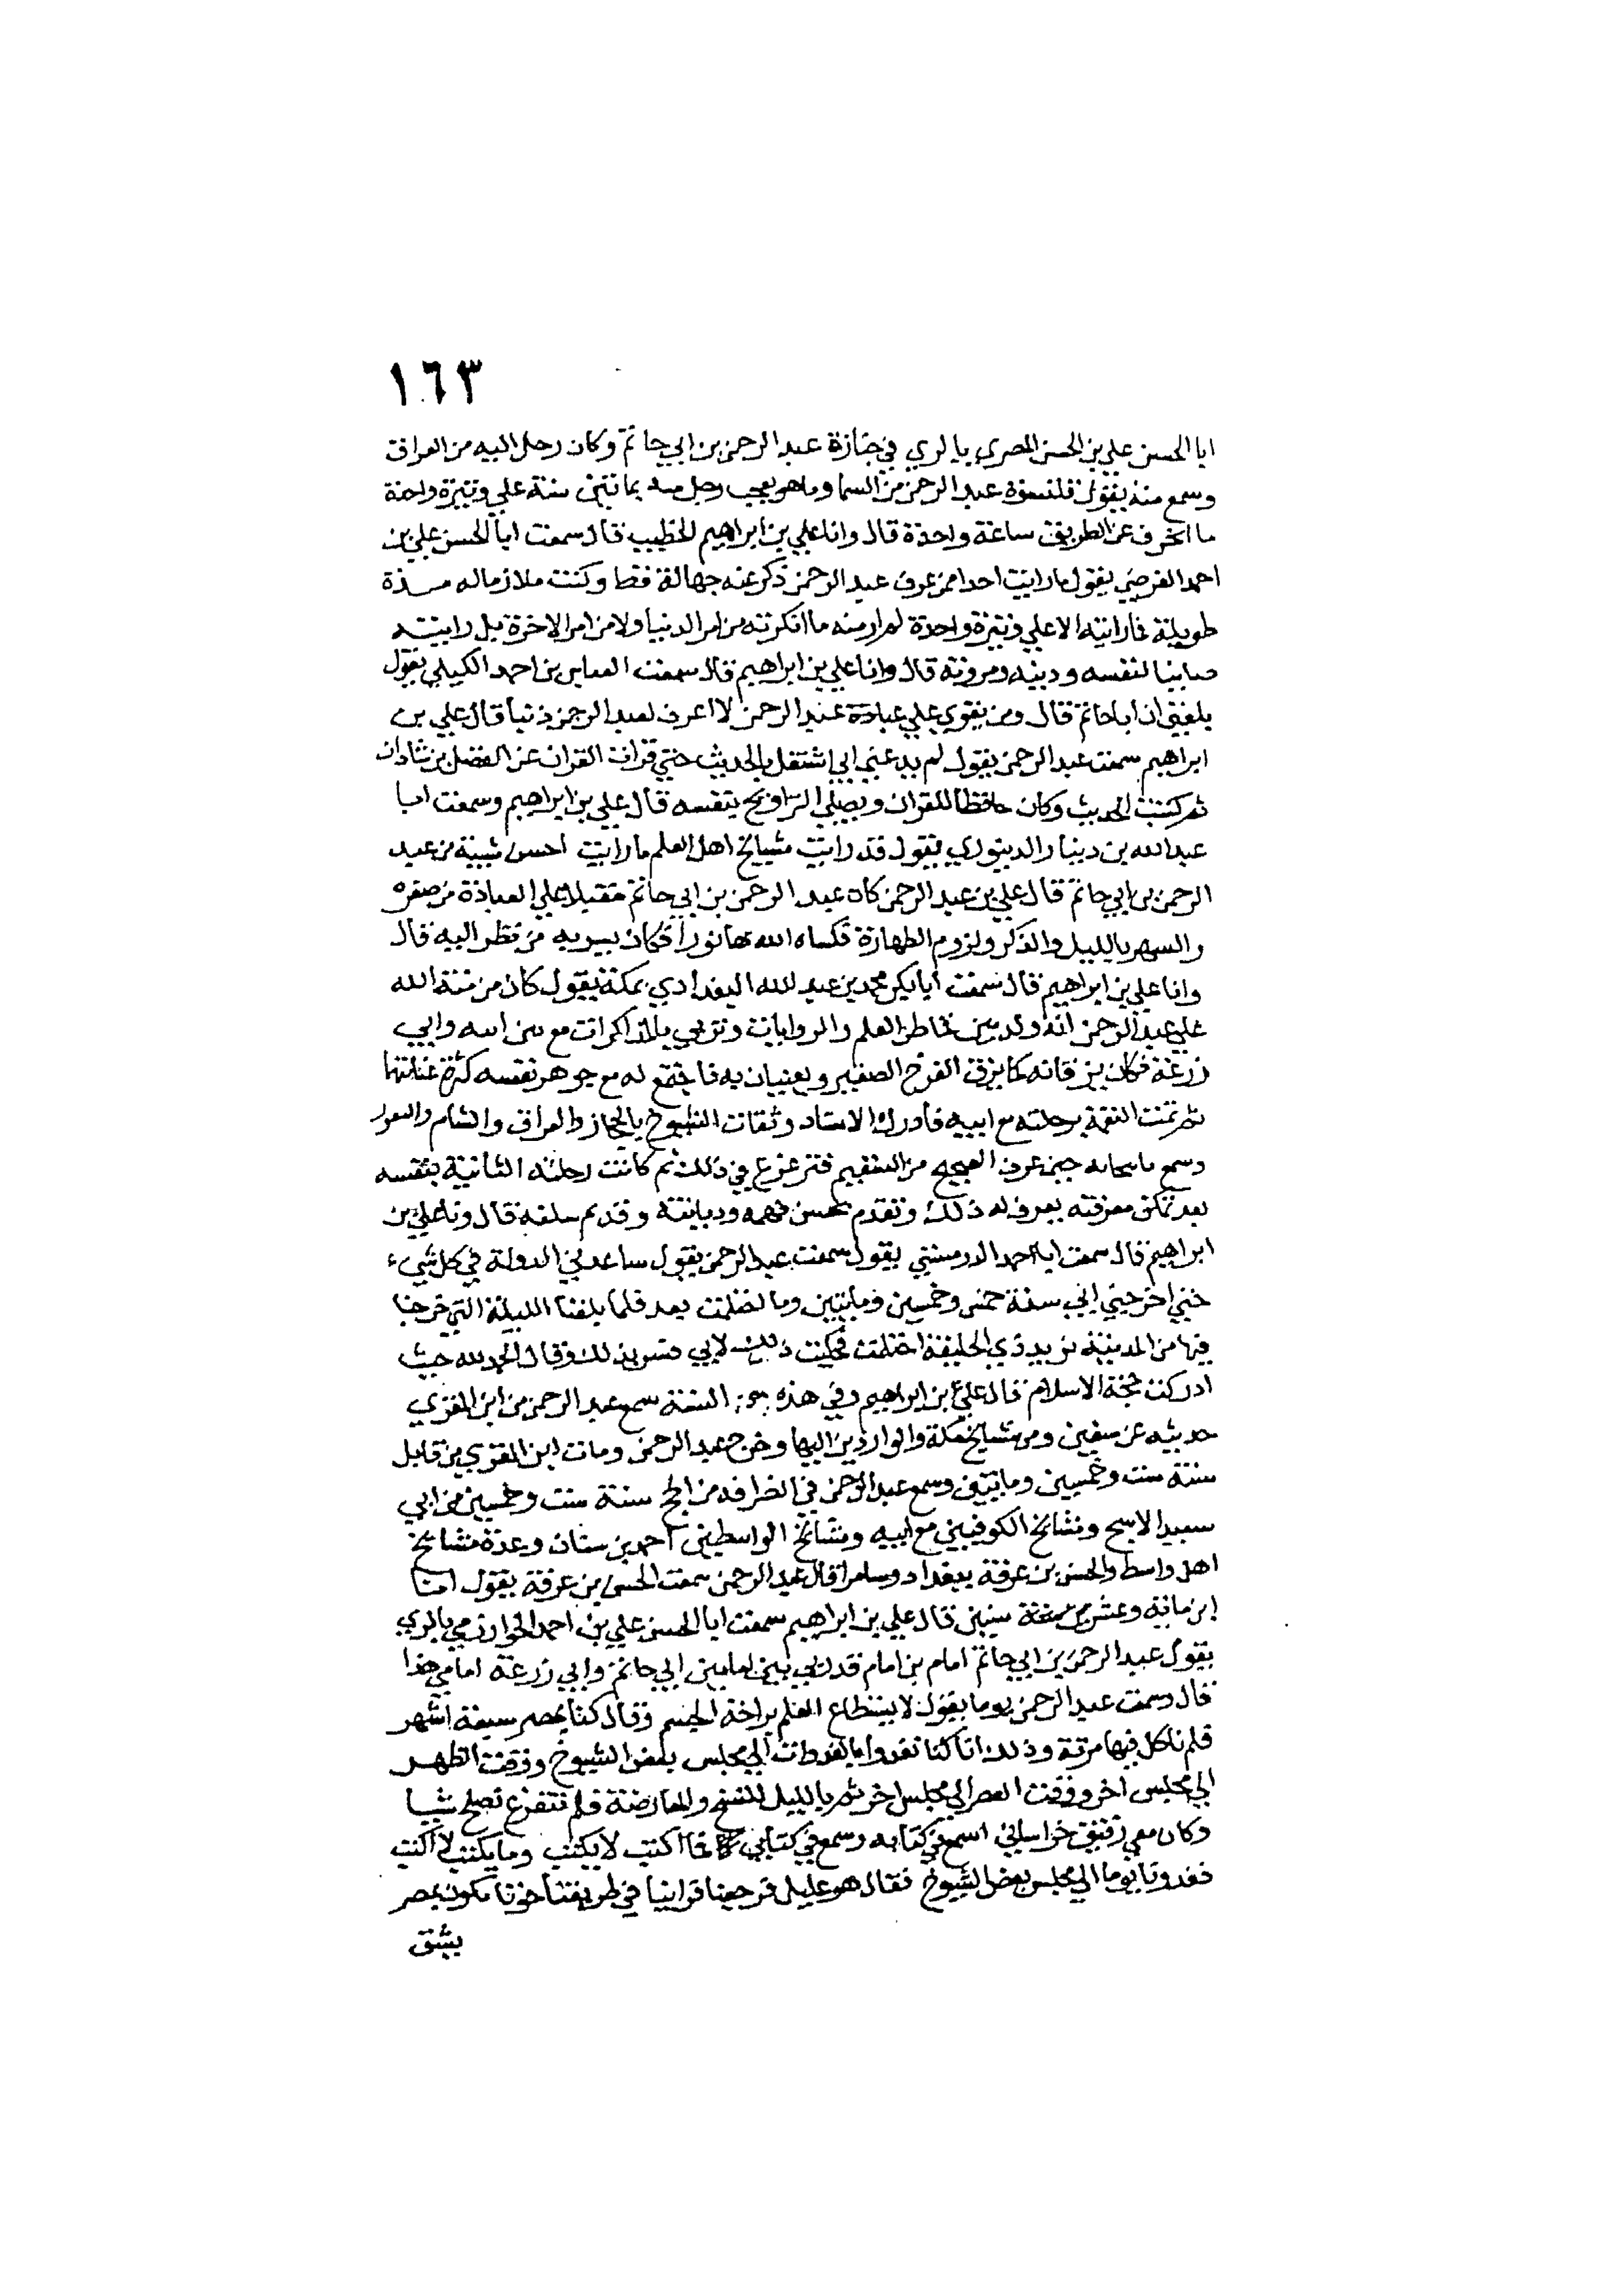 ١٦٣
ابا الحسن علي بن الحسن المصري بالري في جنازة عبد الرحمن بن ابي حاتم وكان رحل اليه من العراق
وسمع منه يقول قلنسوة عبد الرحمن من السما وما هو بعجب رجل منذ ثمانين سنة علي وتيرة واحدة
ما انحرف عن الطريق ساعة واحدة قال وانا علي بن ابراهيم الخطيب قال سمعت ابا الحسن علي بن
احمد الفرضي يقول ما رايت احدا ممن عرف عبد الرحمن ذكر عنه جهالة قط وكنت ملازما له مدة
طويلة فما رايته الا علي وتيرة واحدة لم ار منه ما انكرته من امر الدنيا ولا من امر الاخرة بل رايته
صاينا لنفسه ودينه ومروته قال وانا علي بن ابراهيم قال سمعت العباس بن احمد الكيلي يقول
بلغني ان ابا حاتم قال ومن يقوي علي عبادة عبد الرحمن لا اعرف لعبد الرحمن ذنبا قال علي بن
ابراهيم سمعت عبد الرحمن يقول لم يدعني ابي اشتغل بالحديث حتي قرات القران عن الفضل بن شاذان
ثم كتبت الحديث وكان حافظا للقران ويصلي التراويح بنفسه قال علي بن ابراهيم وسمعت ابا
عبد الله بن دينار الدينوري يقول قد رايت مشايخ اهل العلم ما رايت احسن شيبة من عبد
الرحمن بن ابي حاتم قال علي بن عبد الرحمن كان عبد الرحمن بن ابي حاتم مقبلا علي العبادة من صغره
والسهر بالليل والذكر ولزوم الطهارة فكساه الله بها نورا فكان يسر به من نظر اليه قال
وانا علي بن ابراهيم قال سمعت ابا بكر محمد بن عبد الله البغدادي بمكة يقول كان من منة الله
علي عبد الرحمن انه ولد بين قماطر العلم والروايات وتربي بالمذاكرات مع بين ابيه وابي
زرعة فكان يزقانه كما يزق الفرخ الصغير ويعنيان به فاجتمع له مع جوهر نفسه كثرة عنايتهما
ثم تمت النعمة برحلته مع ابيه فادرك الاسناد وثقات الشيوخ بالحجاز والعراق والشام والثغور
وسمع حين عرف الصحيح من السقيم فترعرع في ذلك ثم كانت رحلته الثانية بنفسه
بعد تمكن معرفته يعرف له ذلك وتقدم بحسن فهمه وديانته وقديم سلفه قال وانا علي بن
ابراهيم قال سمعت ابا احمد يقول سمعت عبد الرحمن يقول ساعدني الدولة في كل شيء
حتي اخرجني ابي سنة خمس وخمسين ومايتين وما احتلمت بعد فلما بلغنا الليلة التي خرجنا
فيها من المدينة نريد ذي الحليفة احتلمت فحكيت ذلك لابي فسر بذلك وقال الحمد لله حيث
ادركت حجة الاسلام قال علي بن ابراهيم وفي هذه السنة سمع عبد الرحمن من ابن المقري
حديثه عن سفين ومن مشايخ مكة والواردين اليها وخرج عبد الرحمن ومات ابن المقري من قابل
سنة ست وخمسين ومايتين وسمع عبد الرحمن في انصرافه من الحج سنة ست وخمسين من ابي
سعيد الاشج ومشايخ الكوفيين مع ابيه ومشايخ الواسطيين احمد بن سنان وعدة مشايخ
اهل واسط والحسن بن عرفة ببغداد وسامرا قال عبد الرحمن سمعت الحسن بن عرفة يقول انا
ابن ماية وعشر سنين قال علي بن ابراهيم سمعت ابا الحسن علي بن احمد الخوارزمي بالري
يقول عبد الرحمن بن ابي حاتم امام بن امام قد ربي بين امامين ابي حاتم وابي زرعة امامي هدا
قال وسمعت عبد الرحمن يوما يقول لا يستطاع العلم براحة الجسم وقال كنا بمصر سبعة اشهر
فلم ناكل فيها مرقة وذلك انا كنا نغدوا بالغدوات الي مجلس بعض الشيوخ ووقت الظهر
الي مجلس اخر ووقت العصر الي مجلس اخر ثم بالليل للنسخ والمعارضة فلم نتفرغ نصلح شيا
وكان معي رفيق خراساني اسمع في كتابه وسمع في كتابي فما اكتب لا يكتب وما يكتب لا اكتب
فغدونا يوما الي مجلس بعض الشيوخ فقال هو عليل فرجعنا فراينا في طريقنا حوتا يكون بمصر
يشق